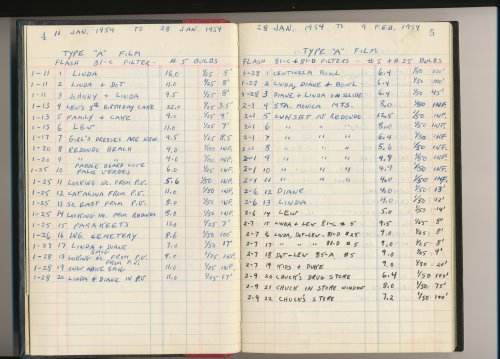 4 11 JAN. 1959 TO 28 JAN. 1959
TYPE "A" FILM
FLASH 81-C FILTER- #5 BULBS
1-11 1 LINDA 16.0 1/25 5'
1-11 2 LINDA + DOT 11.0 1/25 8'
1-11 3 + LINDA 9.5 1/25 8'
1-13 4 LEW'S 8th BIRTHDAY CAKE 22.0 1/25 3.5'
1-13 5 FAMILY + CAKE 9.0 1/25 9'
1-13 6 LEW 11.0 1/25 7'
1-17 7 GIRL'S DRESSES ARE NEW 9.5 1/25 8.5'
1-20 8 REDONDO BEACH 9.0 1/100 INF.
1-20 9 " " 9.0 1/100 INF.
1-25 10 PADDLE BOARD COVE PALOS VERDES 6.0 1/100 INF.
1-25 11 LOOKING NO. FROM P.V. 5.6 1/50 INF.
1-25 12 CATALINA FROM P.V. 11.0 1/50 INF.
1-25 13 SO. EAST FROM P.V. 8.0 1/50 INF.
1-25 14 LOOKING NO. FROM REDONDO 8.0 1/50 INF.
1-25 15 PARAKEETS 11.0 1/25 7'
1-26 16 ING. CEMETERY 8.0 1/50 100'
1-27 17 LINDA + DIANE 7.0 1/50 17'
1-28 18 LOOKING NO. FROM P.V. 9.0 1/25 INF.
1-28 19 SNOW ABOVE SMOG FROM P.V. 11.0 1/25 INF.
1-28 20 LINDA + DIANE IN P.V. 11.0 1/25 17'
28 JAN. 1959 TO 9 FEB. 1959 5
TYPE "A" FILM
FLASH 81-C + 81-D FILTERS - #5 + #25 BULBS
1-28 1 CENTINELA BOWL 6.4 1/50 100'
1-28 2 LINDA, DIANE + BOWL 6.4 1/50 100'
1-28 3 DIANE + LINDA ON SLIDE 6.4 1/50 45'
2-1 4 STA. MONICA MTS. 8.0 1/50 INF.
2-1 5 SUNSET AT REDONDO 12.5 1/50 INF.
2-1 6 " " " 8.0 1/50 INF.
2-1 7 " " " 6.4 1/50 INF.
2-1 8 " " " 5.6 1/50 INF.
2-1 9 " " " 4.9 1/50 INF.
2-1 10 " " " 4.9 1/50 INF.
2-1 11 " " " 4.0 1/50 INF.
2-6 12 DIANE 4.0 1/50 13'
2-6 13 LINDA 4.0 1/50 12'
2-6 14 LEW 5.0 1/50 14'
2-7 15 LINDA + LEW 81-C #5 9.5 1/25 8'
2-7 16 LINDA, DOT-LEW- 81-D #25 9.0 1/25 9'
2-7 17 " " " 81-D #5 9.0 1/25 8'
2-7 18 DOT-LEW 85-A #5 9.0 1/25 9'
2-7 19 KIDS + DUKE 9.0 1/50 20'
2-9 20 CHUCK'S DRUG STORE 6.4 1/50 100'
2-9 21 CHUCK IN STORE WINDOW 8.0 1/50 75'
2-9 22 CHUCK'S STORE 7.2 1/50 100'